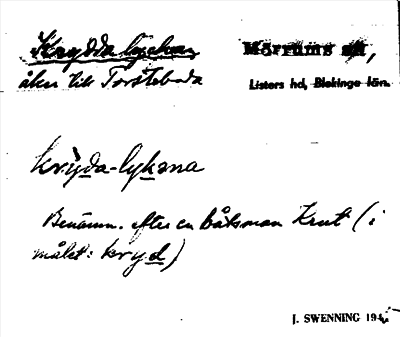 Krydda lyckan, Mörrums sn,
åker till Torstaboda Listers hd, Blekinge län.
krỳda-lykəna
Benämn. efter en båtsman Krut (i
målet: kryd)
J. SWENNING 194